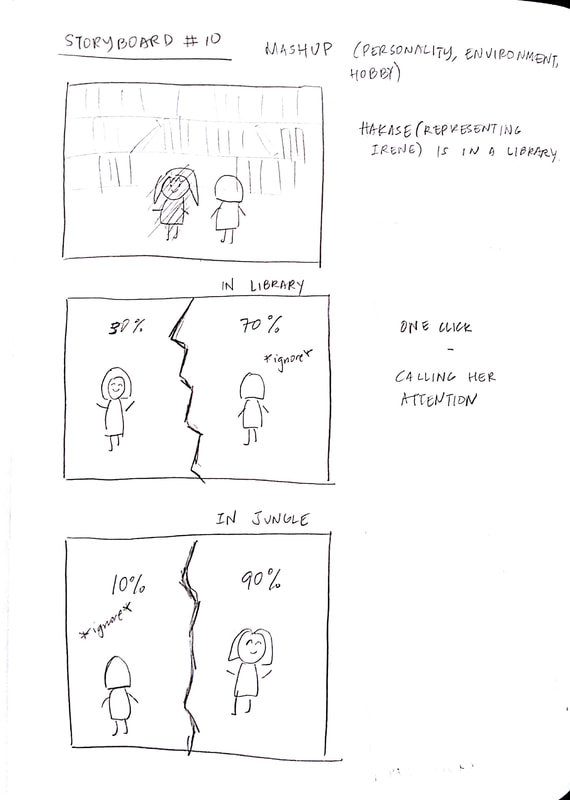 STORYBOARD #10
MASHUP (PERSONALITY, ENVIRONMENT,
HOBBY)
HAKASE (REPRESENTING
IRENE) IS IN A LIBRARY.
IN LIBRARY
30%
70%
*ignore*
ONE CLICK
-
CALLING HER
ATTENTION
IN JUNGLE
10%
90%
*ignore*